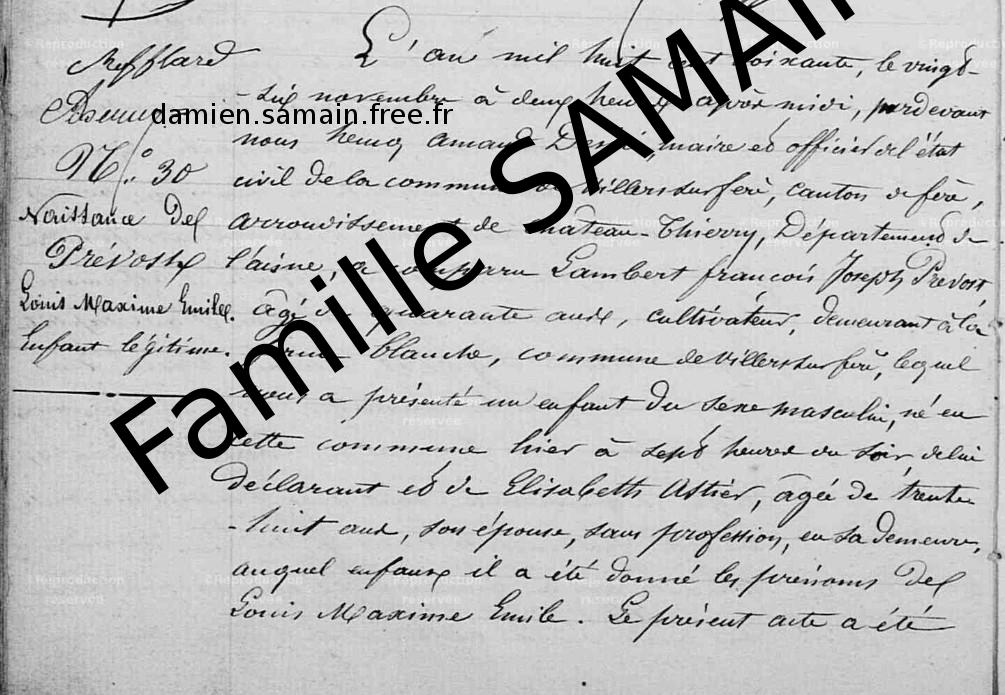 N.° 30
Naissance de
Prévost
Louis Maxime Emile.
Enfant légitime.
L'an mil huit cent soixante, le vingt-
-six novembre à deux heures après midi, pardevant
nous Amand maire et officier de l'état
civil de la commune de Villers sur fère, canton de fère,
arrondissement de Chateau-Thierry, Département de
l'aisne, a comparu Lambert françois Joseph Prévost,
agé de quarante ans, cultivateur, demeurant à la
blanche, commune de Villers sur fère, lequel
nous a présenté un enfant du sexe masculin, né en
cette commune hier à sept heures du soir, de lui
déclarant et de Elisabeth Astier, agée de trente
-huit ans, son épouse, sans profession, en sa demeure,
auquel enfant il a été donné les prénoms de
Louis Maxime Emile. Le présent acte a été
damien.samain.free.fr
Famille SAMAIN
© Reproduction
réservée